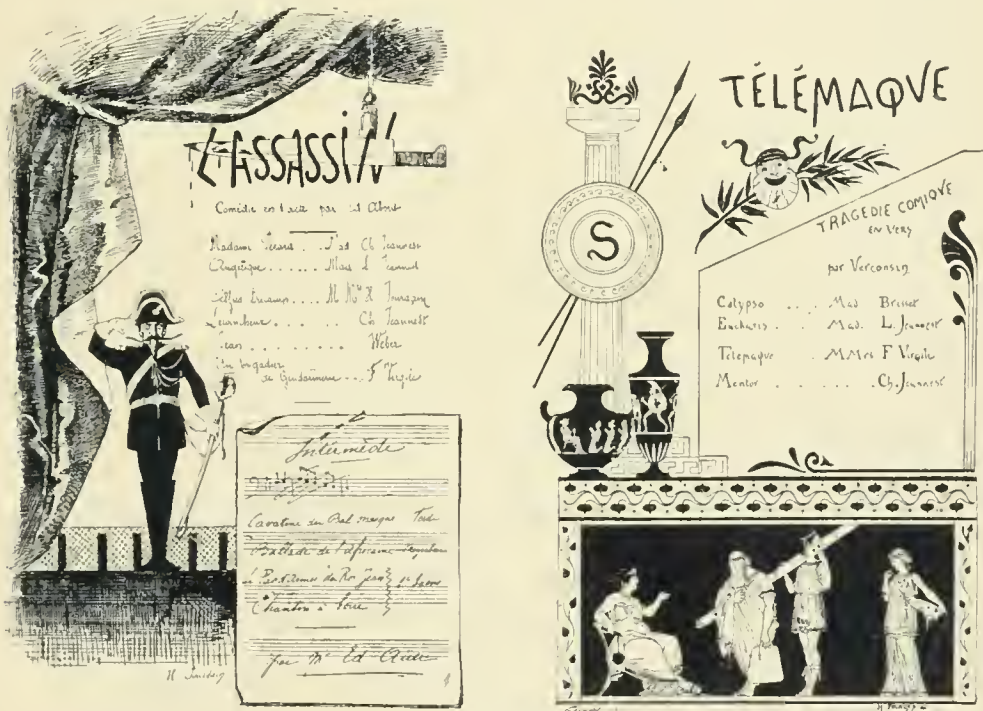 L'ASSASSIN
Comédie en 1 acte par Ed About
Madame . . . Ch Jeannest
Angélique . . . . . . L Jeannest
. . . M Mrs H
. . . . . Ch Jeannest
Jean . . . . . . . . . Weber
Un brigadier
de Gendarmerie . . . F Virgile
Intermède
Cavatine du Bal masqué
Ballade de
le Pas d'armes du Roi Jean
Chanson à boire
par Mr Ed
TÉLÉMAQVE
S
TRAGEDIE COMIQVE
EN VERS
par Verconsin
Calypso . . . . Mad. Brisset
Eucharis . . . Mad. L. Jeannest
Telemaque . MMrs F Virgile
Mentor . . . . . . Ch. Jeannest